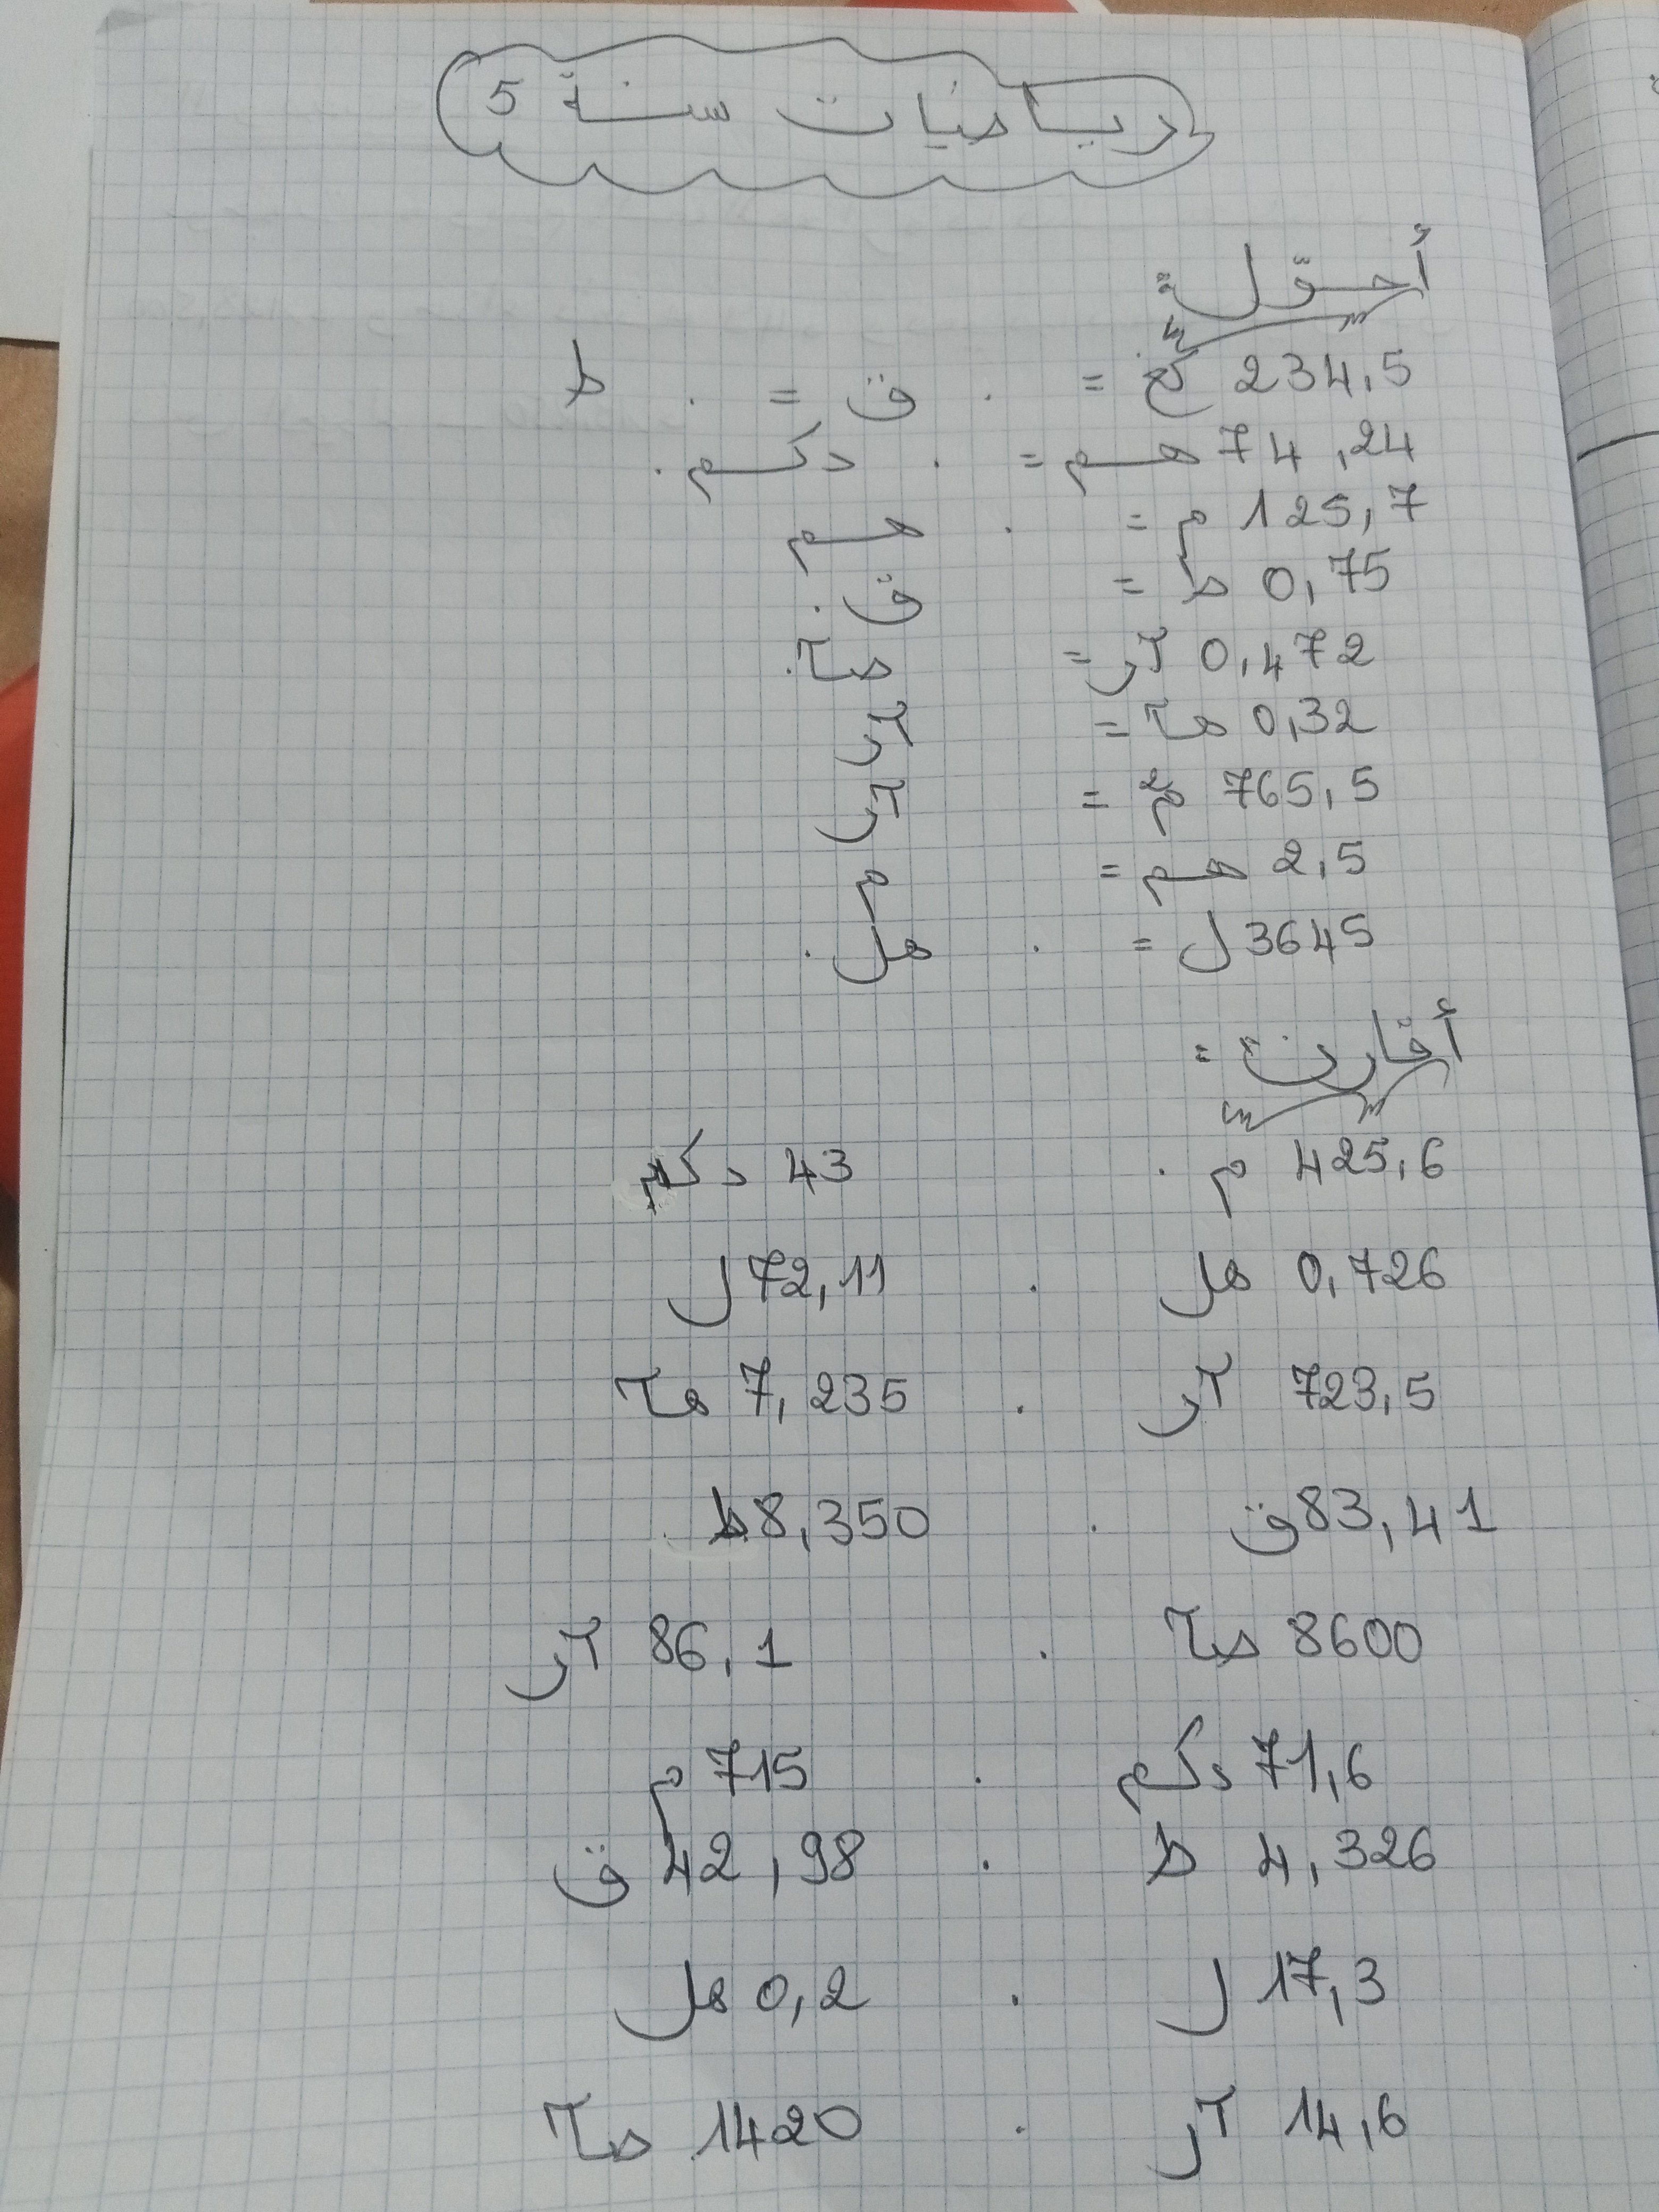 رياضيات سنة 5
أحوّل:
234,5 كغ = . ق = . ط
74,24 هم = . دكم.
125,7 م = . هم
0,75 ط = ق.
0,472 آر = صآ.
0,32 هآ = آر
765,5 م² = آر
2,5 هم = م
3645 ل = . هل.
أقارن:
425,6 م . 43 دكم
0,726 هل . 72,11 ل
723,5 آر . 7,235 هآ
83,41 ق . 8,350 ط
8600 صآ . 86,1 آر
71,6 دكم . 715 م
4,326 ط . 42,98 ق
17,3 ل . 0,2 هل
14,6 آر . 1420 صآ